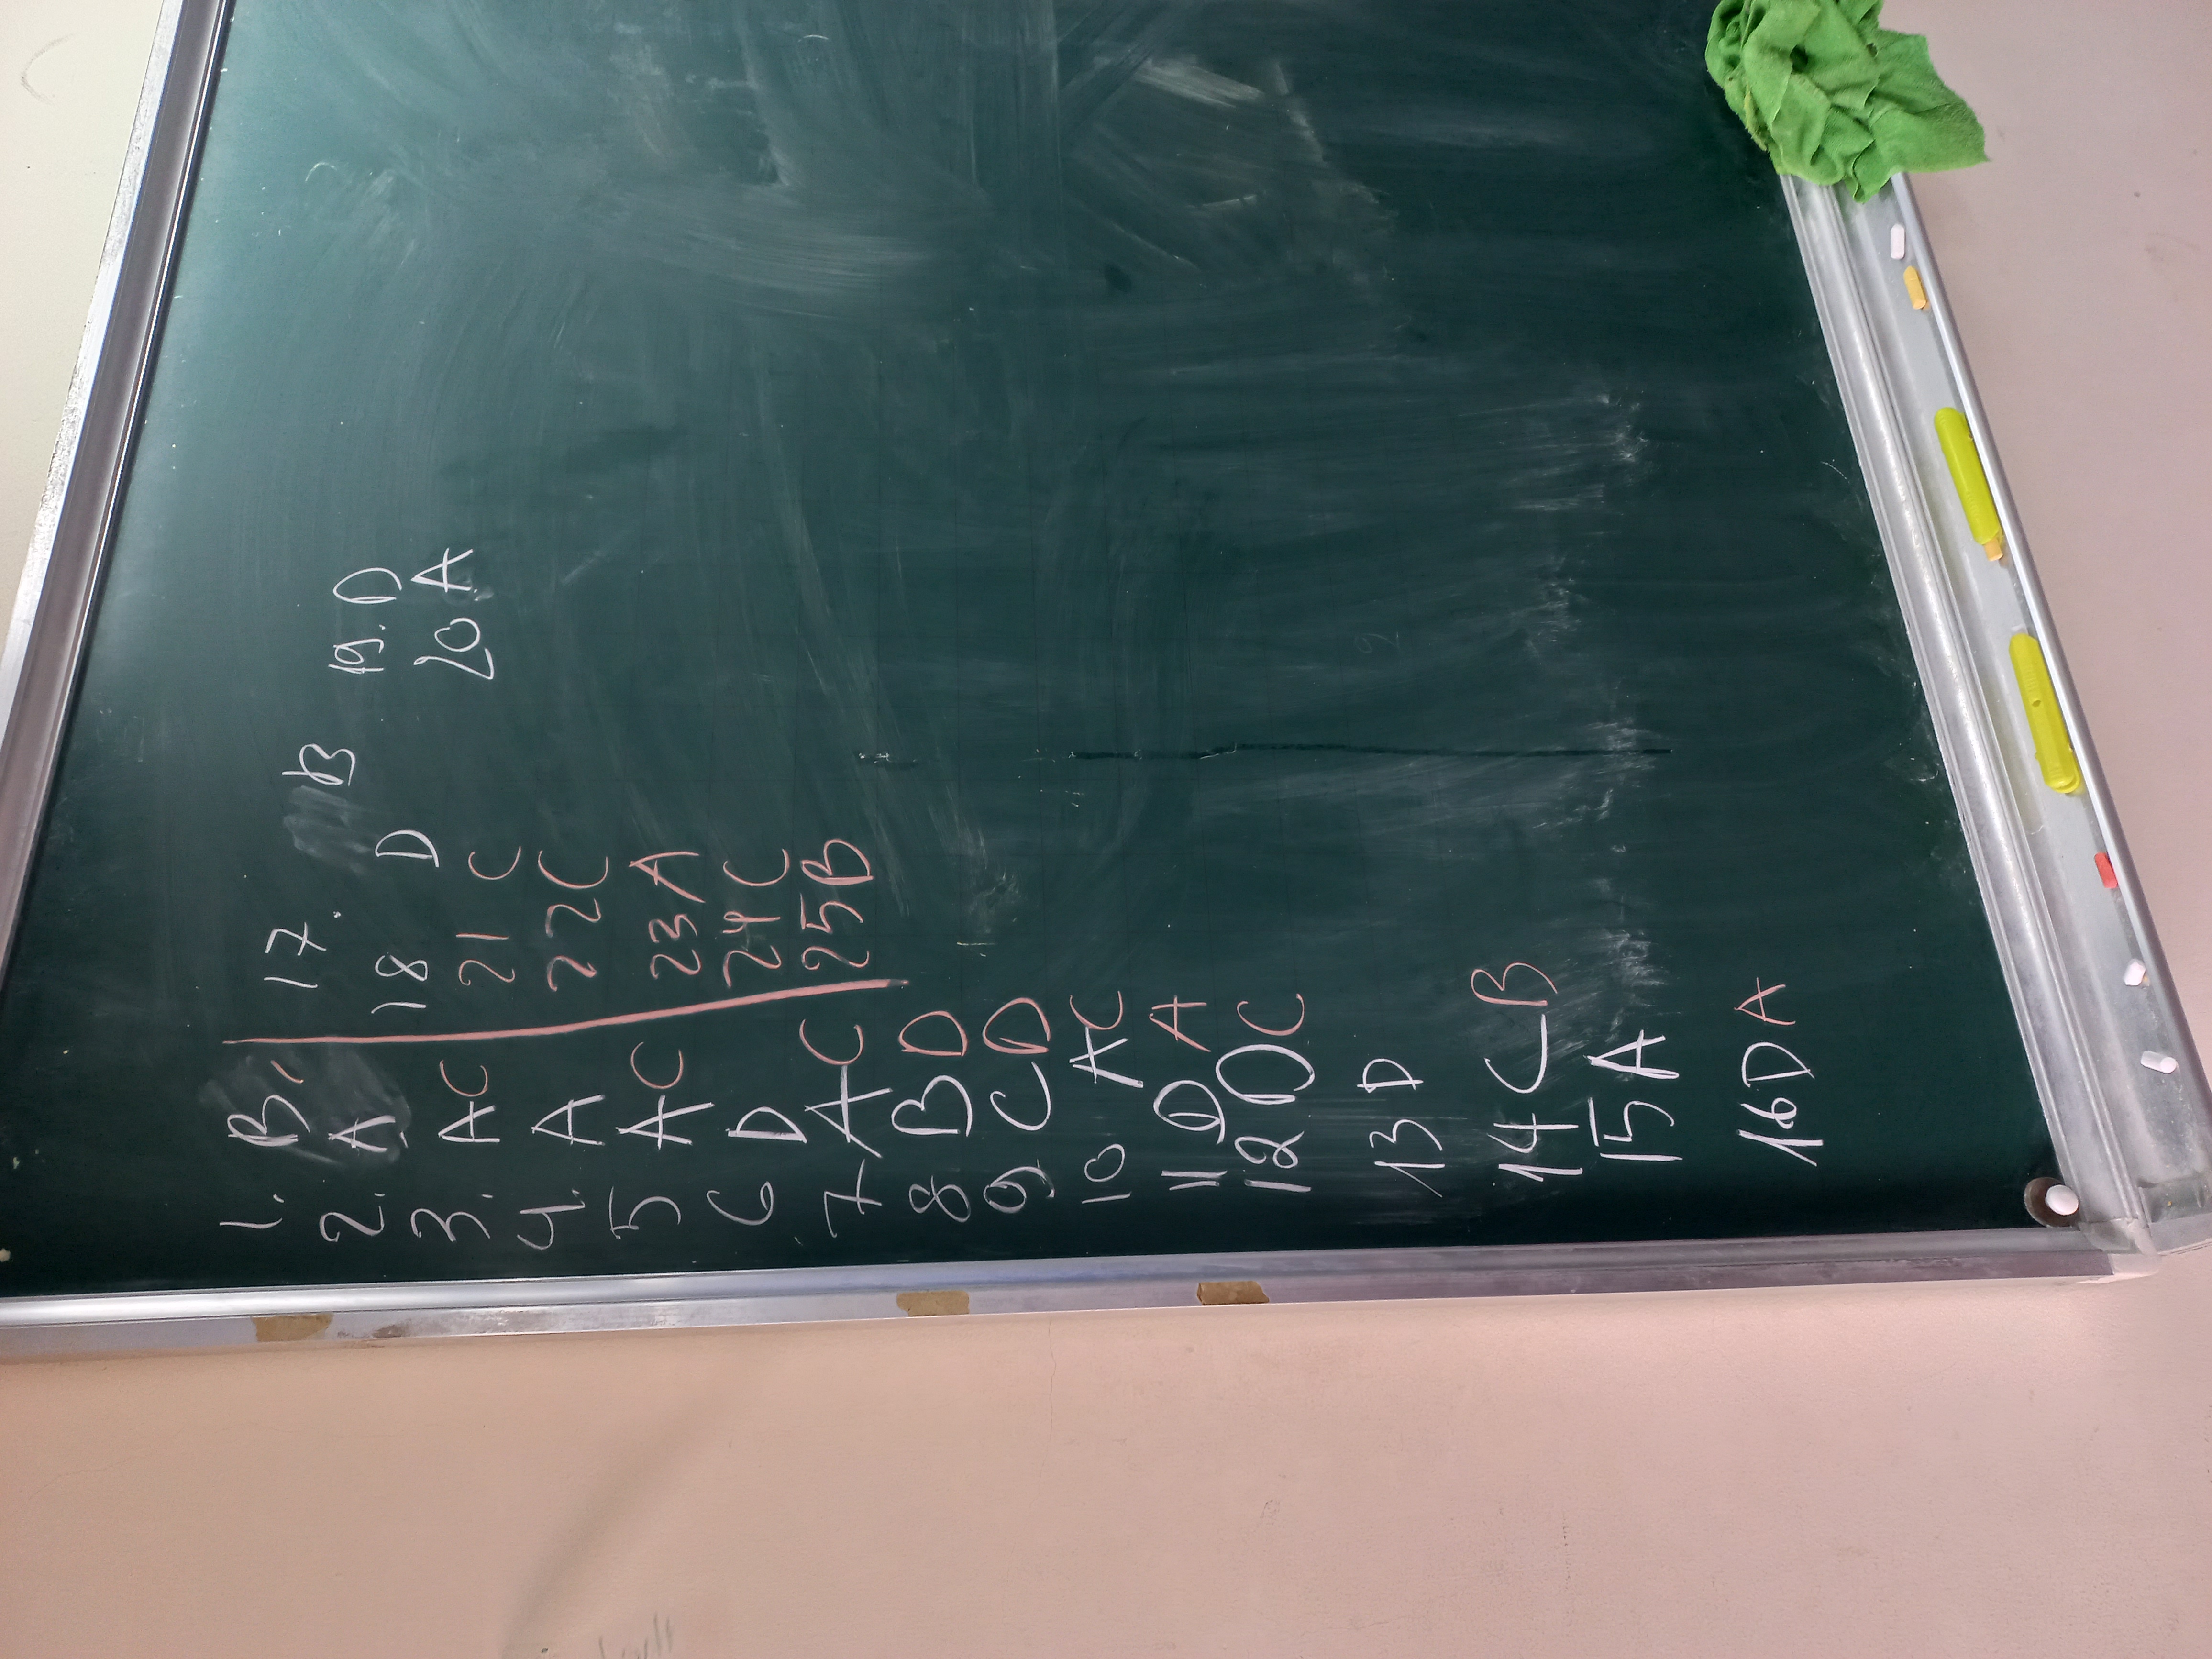 1. B
2. A
3. AC
4. A
5 AC
6 D
7 AC
8 BD
9 CD
10 AC
11 D A
12 DC
13 D
14 CB
15 A
16 D A
17. B
18 D
21 C
22 C
23 A
24 C
25 B
19. D
20. A